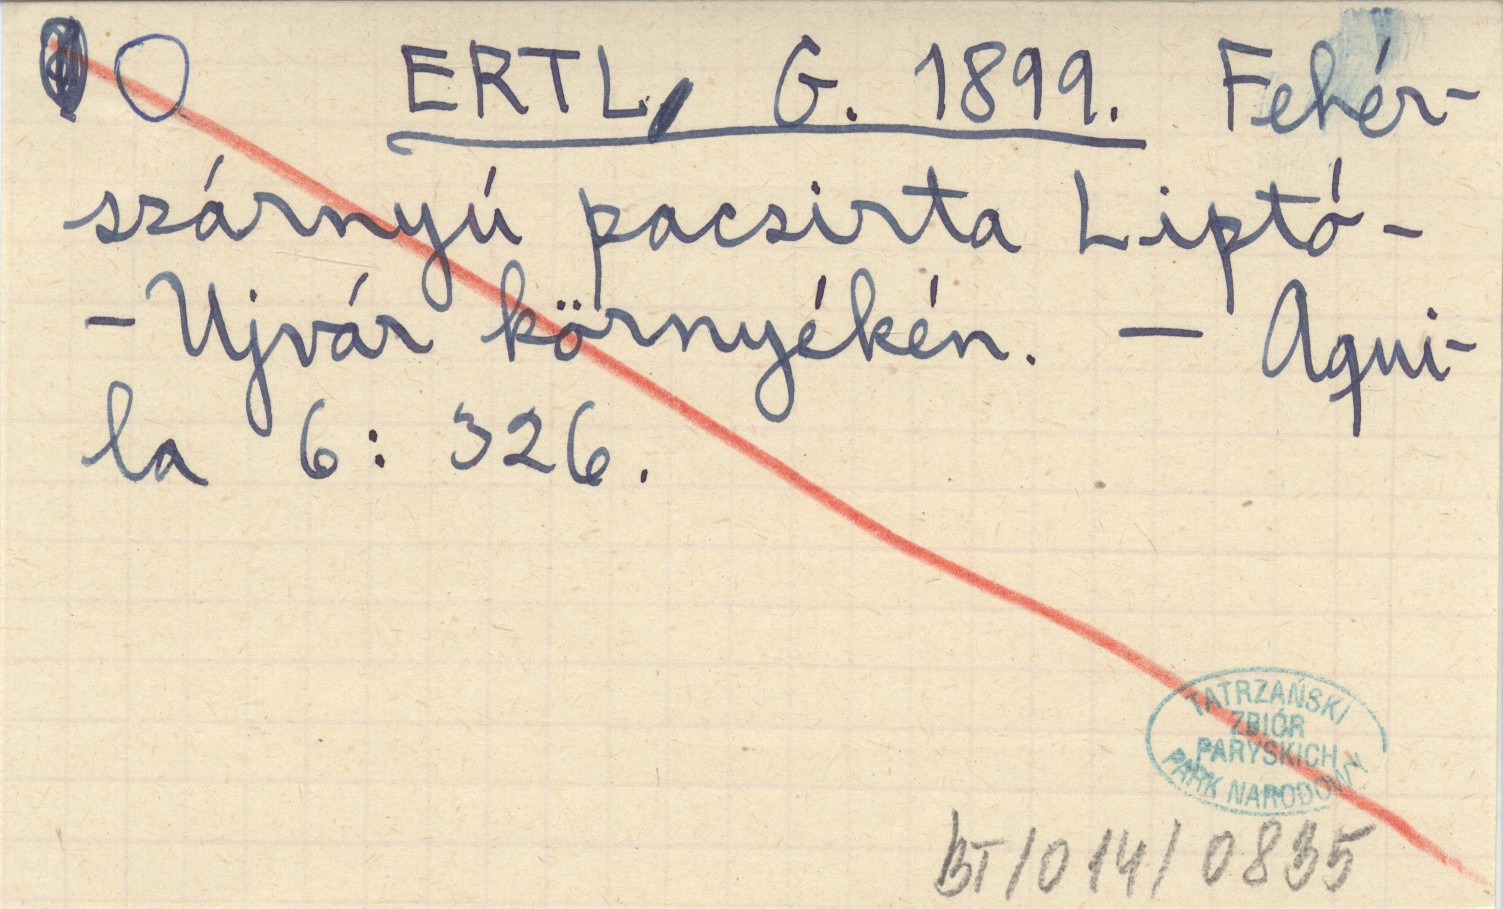 ERTL, G. 1899. Fehér-
szárnyú pacsirta Liptó-
-Ujvár környékén. — Aqui-
la 6: 326.
TATRZAŃSKI
ZBIÓR
PARYSKICH
PARK NARODOWY
BT/014/0835